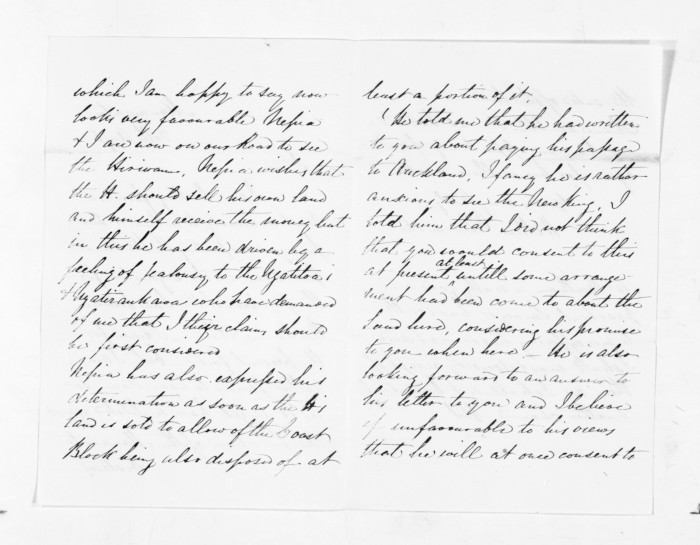 which I am happy to say now
looks very favourable Nepia
& I are now on our road to see
the Hiriwanu, Nepia wishes that
the H. should sell his own land
and himself receive the money but
in this he has been driven by a
feeling of jealousy to the Ngatitoa's
& Ngatiraukawas who have demanded
of me that I their claim, should
be first considered
Nepia has also expressed his
determination as soon as the H's
land is sold to allow of the Coast
Block being also disposed of at
least a portion of it.
He told me that he had written
to you about paying his passage
to Auckland, I fancy he is rather
anxious to see the New King, I
told him that I did not think
that you would consent to this
at present at least untill some arrange
ment had been come to about the
land here, considering his promise
to you when here – He is also
looking forward to an answer to
his letter to you and I believe
if unfavourable to his views
that he will at once consent to